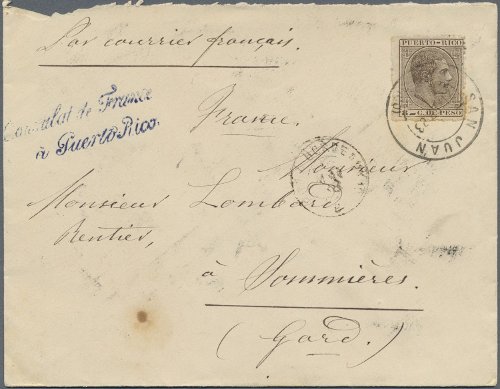 Par courrier français.
PUERTO-RICO
C. DE PESO
SAN JUAN
Consulat de France
à Puerto Rico.
France.
Monsieur
Monsieur Lombard
Rentier,
à Sommières.
(Gard.)